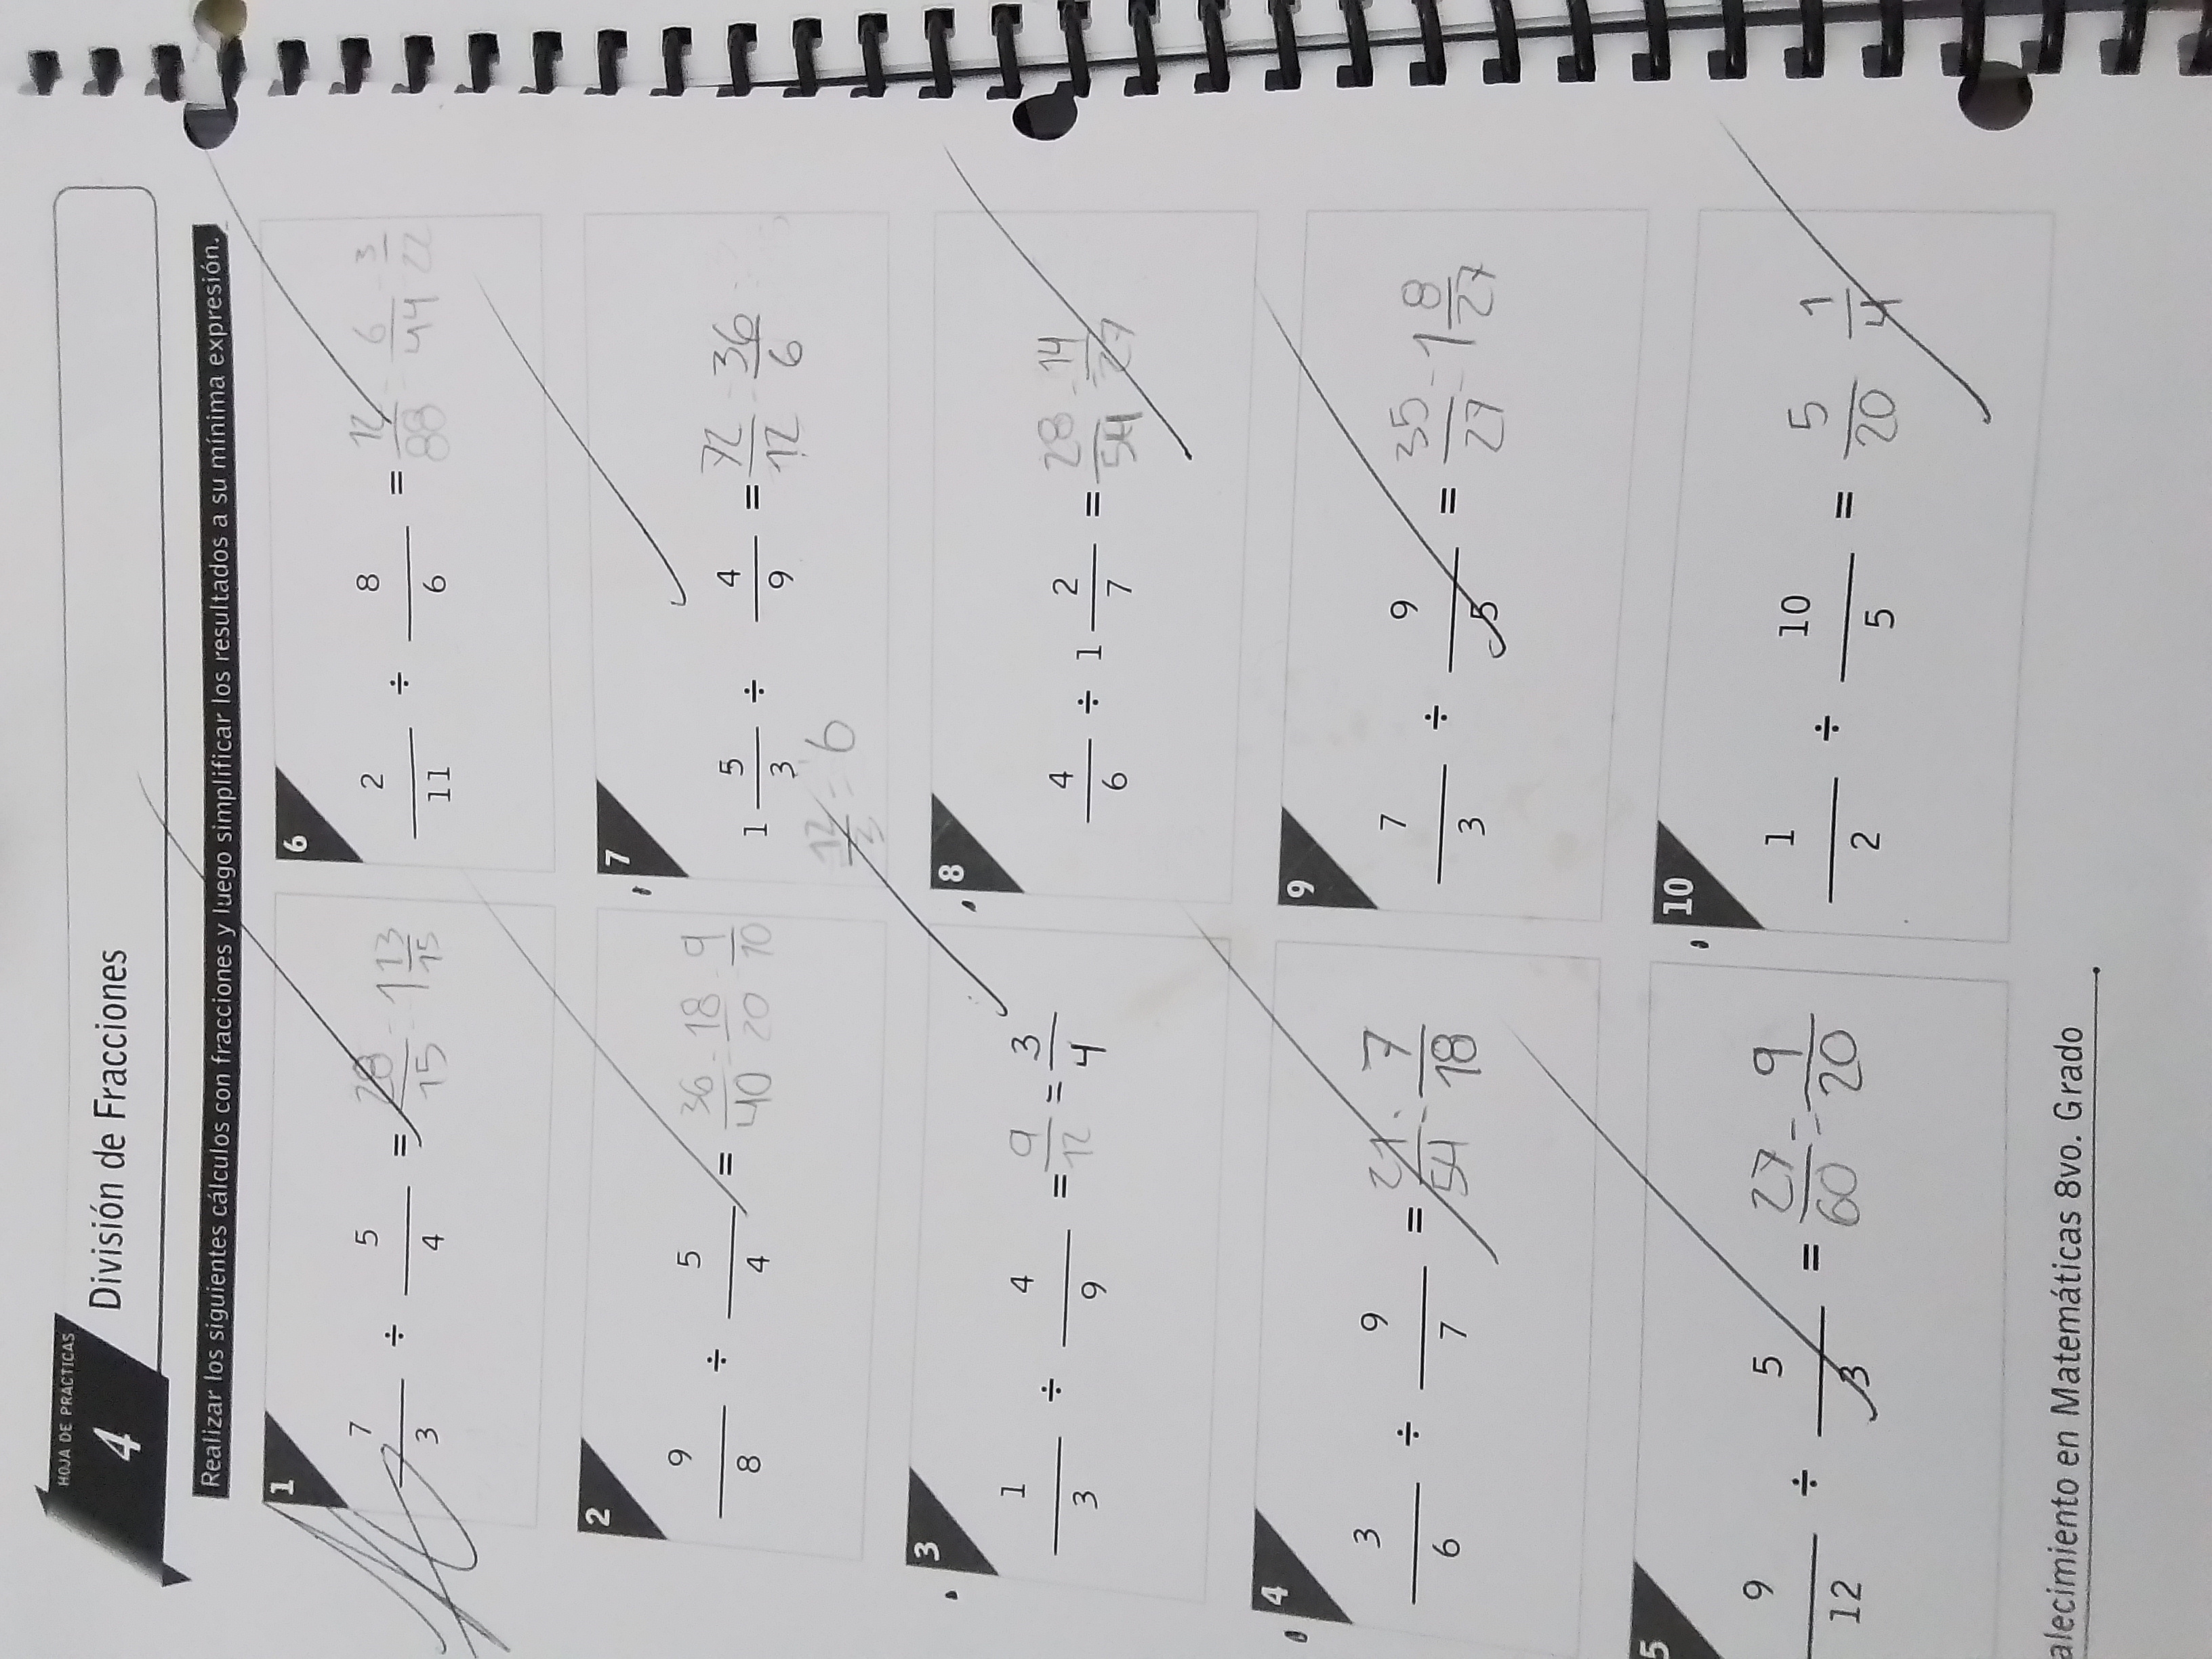 HOJA DE PRACTICAS
4
División de Fracciones
Realizar los siguientes cálculos con fracciones y luego simplificar los resultados a su mínima expresión.
1
7/3 ÷ 5/4 = 28/15 = 1 13/15
2
9/8 ÷ 5/4 = 36/40 = 18/20 = 9/10
3
1/3 ÷ 4/9 = 9/12 = 3/4
4
3/6 ÷ 9/7 = 21/54 = 7/18
5
9/12 ÷ 5/3 = 27/60 = 9/20
6
2/11 ÷ 8/6 = 12/88 = 6/44 = 3/22
7
1 5/3 ÷ 4/9 = 72/12 = 36/6
12/2 = 6
8
4/6 ÷ 1 2/7 = 28/54 = 14/27
9
7/3 ÷ 9/5 = 35/27 = 1 8/27
10
1/2 ÷ 10/5 = 5/20 1/4
alecimiento en Matemáticas 8vo. Grado